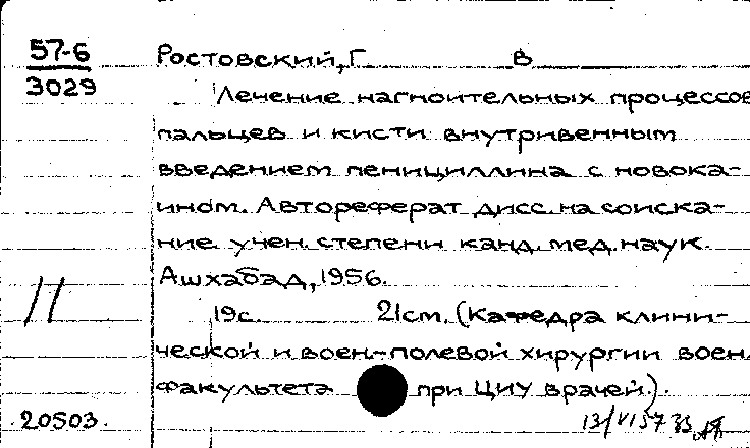 57-6
3029
Ростовский, Г В
Лечение нагноительных процессов
пальцев и кисти внутривенным
введением пенициллина с новока-
ином. Автореферат дисс. на соиска-
ние учен. степени канд. мед. наук.
Ашхабад, 1956.
19с. 21см. (Кафедра клини-
ческой и воен.-полевой хирургии воен.
факультета при ЦИУ врачей).
11
20503.
13/VI 57